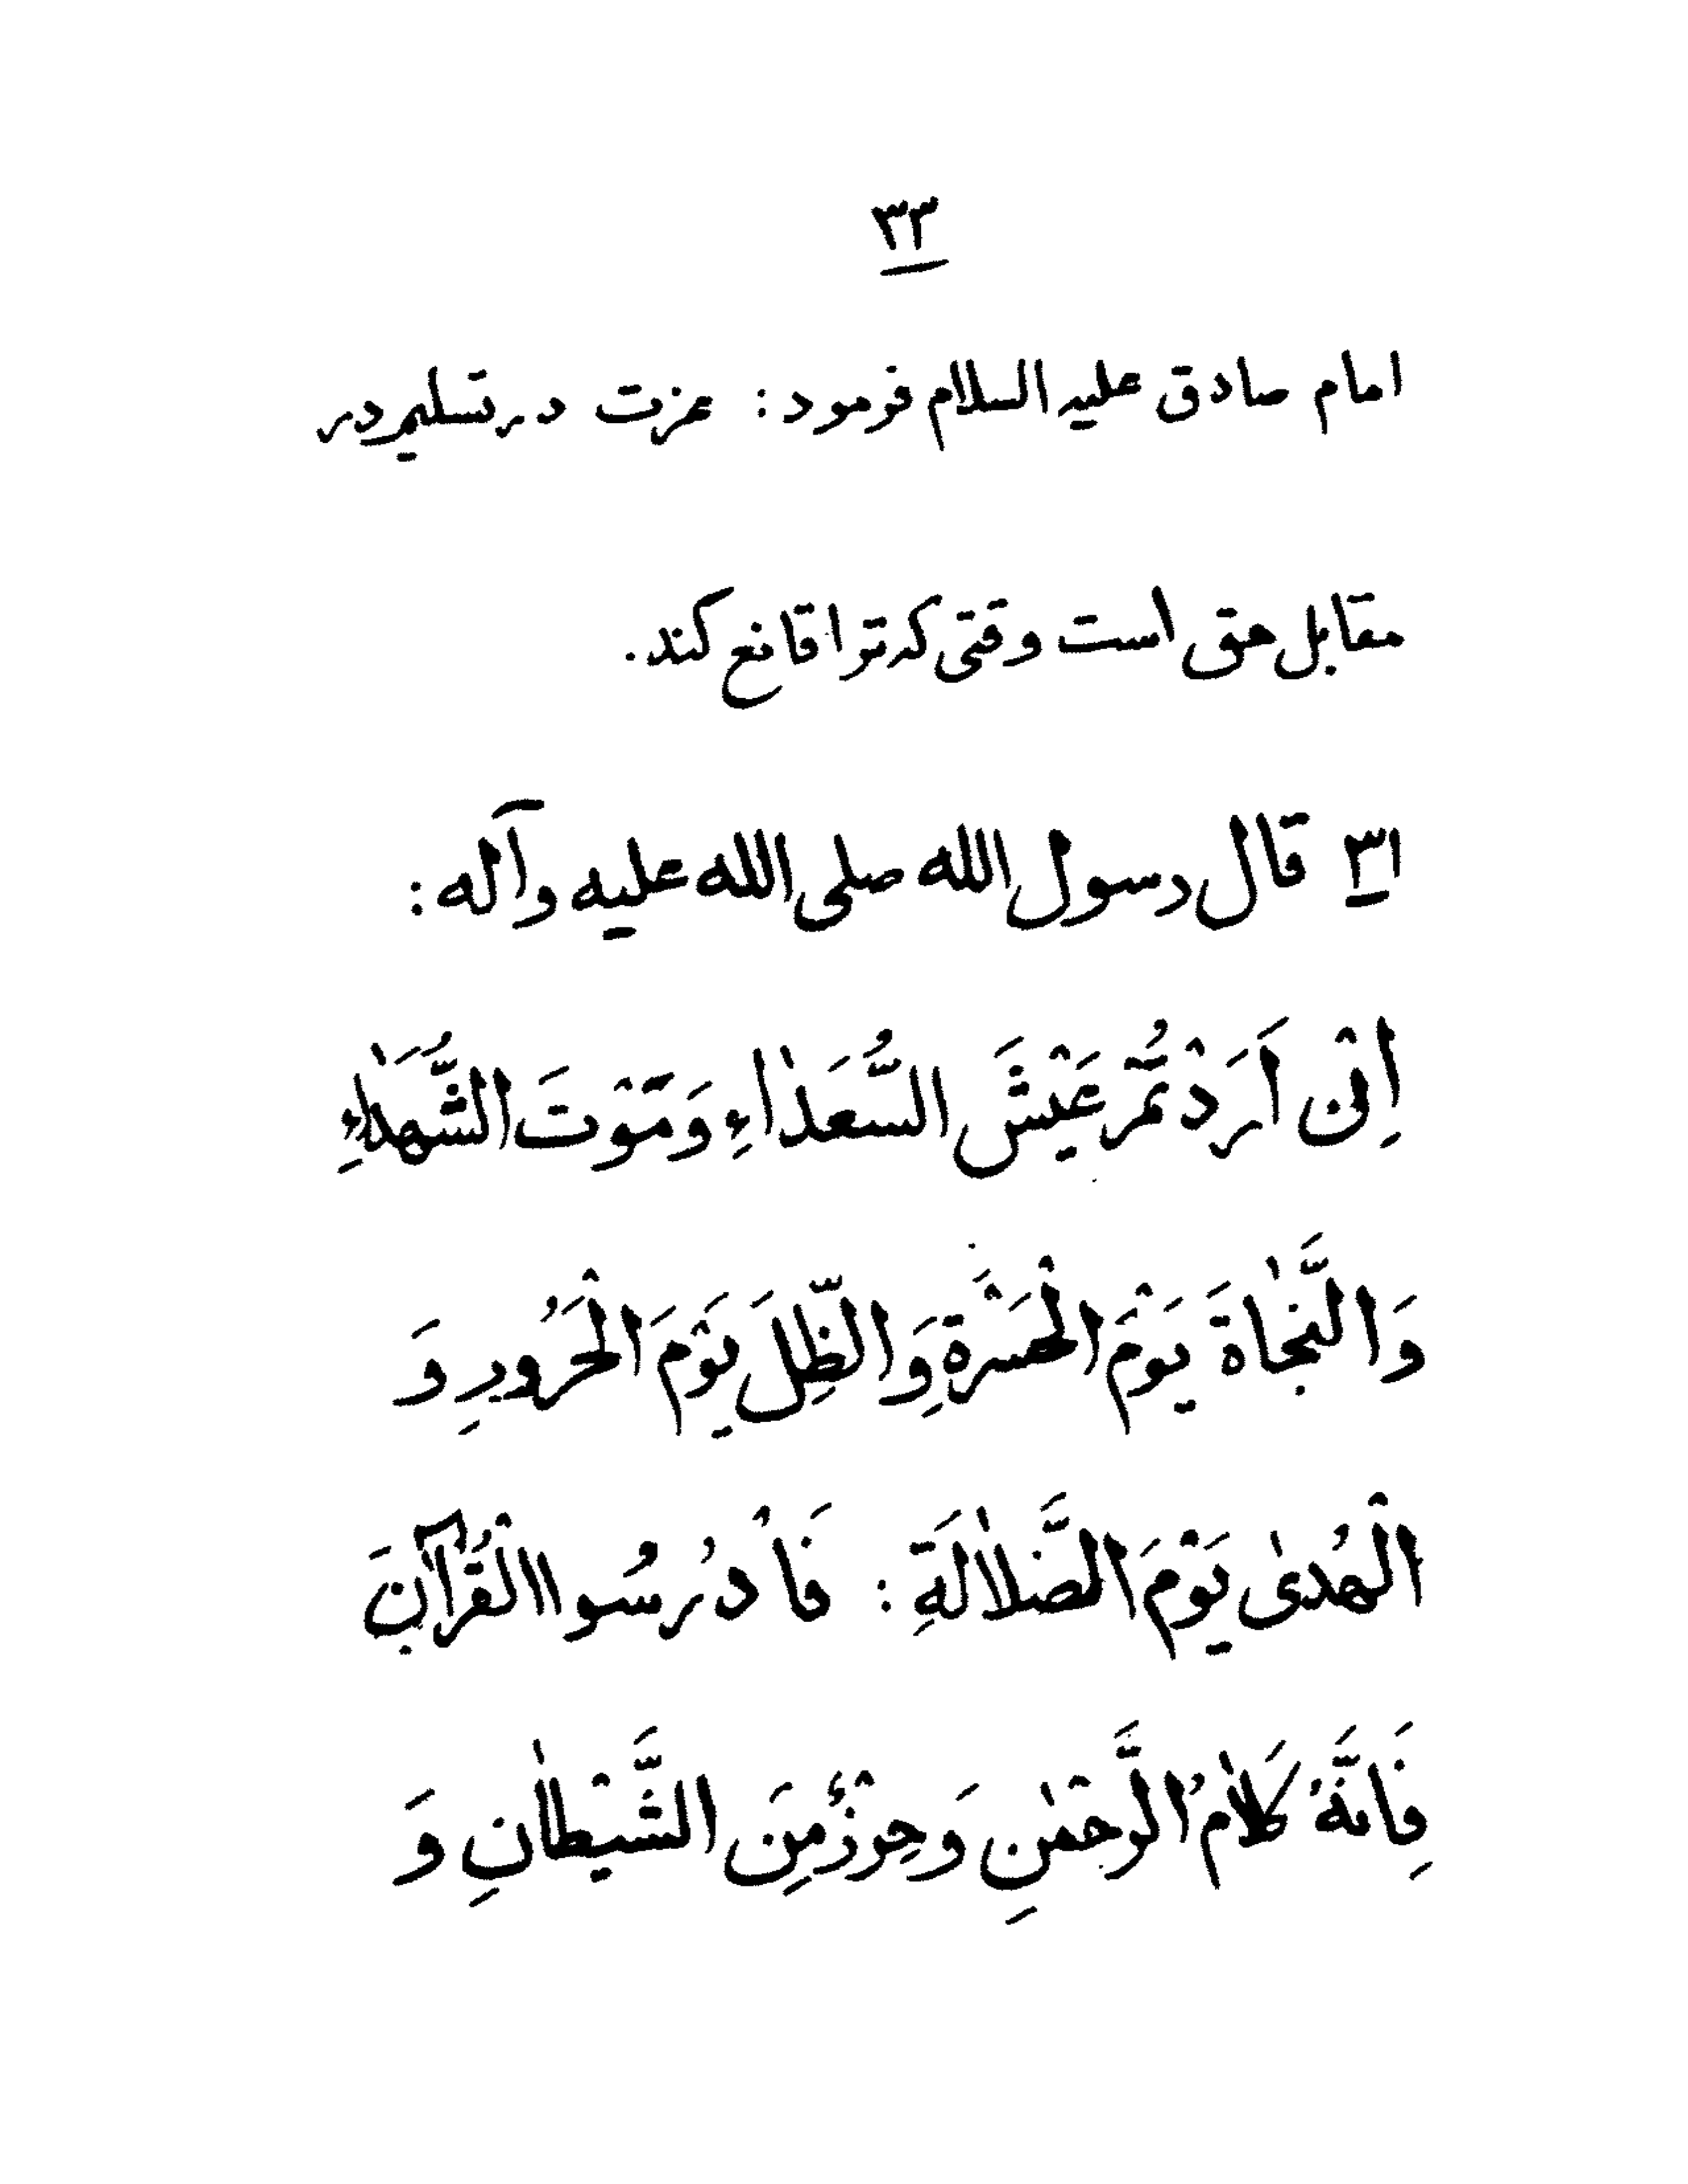 ۳۳
امام صادق علیه السلام فرمود: عزت در تسلیم در
مقابل حق است وقتی که ترا قانع کند.
۳۱ قال رسول الله صلى الله عليه وآله:
اِنْ اَرَدْتُمْ عَيْشَ السُّعَدٰاءِ وَمَوْتَ الشُّهَدٰاءِ
وَالنَّجٰاةَ يَوْمَ الْحَسْرَةِ وَالظِّلَّ يَوْمَ الْحَرُورِ وَ
الْهُدىٰ يَوْمَ الضَّلاٰلَةِ: فَادْرُسُوا الْقُرْآنَ
فَاِنَّهُ كَلاٰمُ الرَّحْمٰنِ وَحِرْزٌ مِنَ الشَّيْطٰانِ وَ